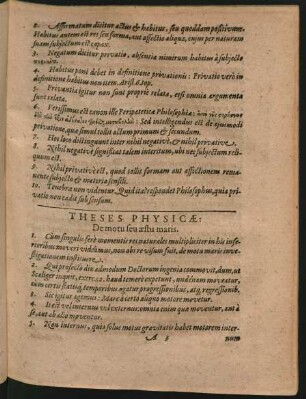 2. Affirmatum dicitur actus & habitus, seu quoddam positivum.
Habitus autem est res seu forma, aut affectio aliqua, cujus per naturam
suam subjectum est capax.
3. Negatum dicitur privatio, absentia nimirum habitus à subjecto
4. Habitus poni debet in definitione privationis: Privatio verò in
definitione habitus non item. Arist. 2. top.
5. Privantia igitur non sunt propriè relata, etsi omnia argumenta
sunt relata.
6. Verissimus est canon ille Peripateticæ Philosophiæ:
Sed intelligendus est de ejusmodi
privatione, quæ simul tollit actum primum & secundum.
7. Hoc modo distinguunt inter nihil negativè, & nihil privativè.
8. Nihil negativè significat talem interitum, ubi nec subjectum reli-
quum est.
9. Nihil privativè est, quod tollit formam aut affectionem rema-
nente subjecto & materia sensili.
10. Tenebræ non videntur. Quid ita? respondet Philosophus, quia pri-
vatio non cadit sub sensum.
THESES PHYSICÆ:
De motu seu æstu maris.
1. Cum singulis ferè momentis res naturales multipliciter in hic infe-
rioribus moveri videamus, non abs re visum fuit, de motu maris inve-
stigationem instituere.
2. Qui profectò diu admodum Doctorum ingenia commovit, dum, ut
Scaliger inquit, exerc. 52. haud temerè exponunt, unde nam moveatur,
cum certis statisq; temporibus agatur progressionibus, atq; regressionib.
3. Sic igitur agimus: Mare à certa aliquo motore movetur.
4. Is est vel internus vel externus: omnia enim quæ moventur, aut à
se, aut ab alio moventur.
5. Non internus, quia solus motus gravitatis habet motorem inter-
A 3 num